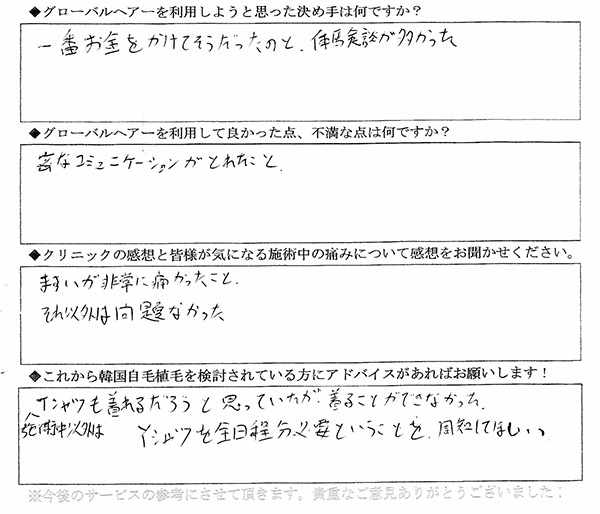 ◆グローバルヘアーを利用しようと思った決め手は何ですか？
一番お金をかけてそうだったのと、体験談が多かった
◆グローバルヘアーを利用して良かった点、不満な点は何ですか？
密なコミュニケーションがとれたこと、
◆クリニックの感想と皆様が気になる施術中の痛みについて感想をお聞かせください。
ますいが非常に痛かったこと、
それ以外は問題なかった
◆これから韓国自毛植毛を検討されている方にアドバイスがあればお願いします！
Tシャツも着れるだろうと思っていたが、着ることができなかった。
施術中以外は Yシャツを全日程分必要ということを、周知してほしい
※今後のサービスの参考にさせて頂きます。貴重なご意見ありがとうございました！